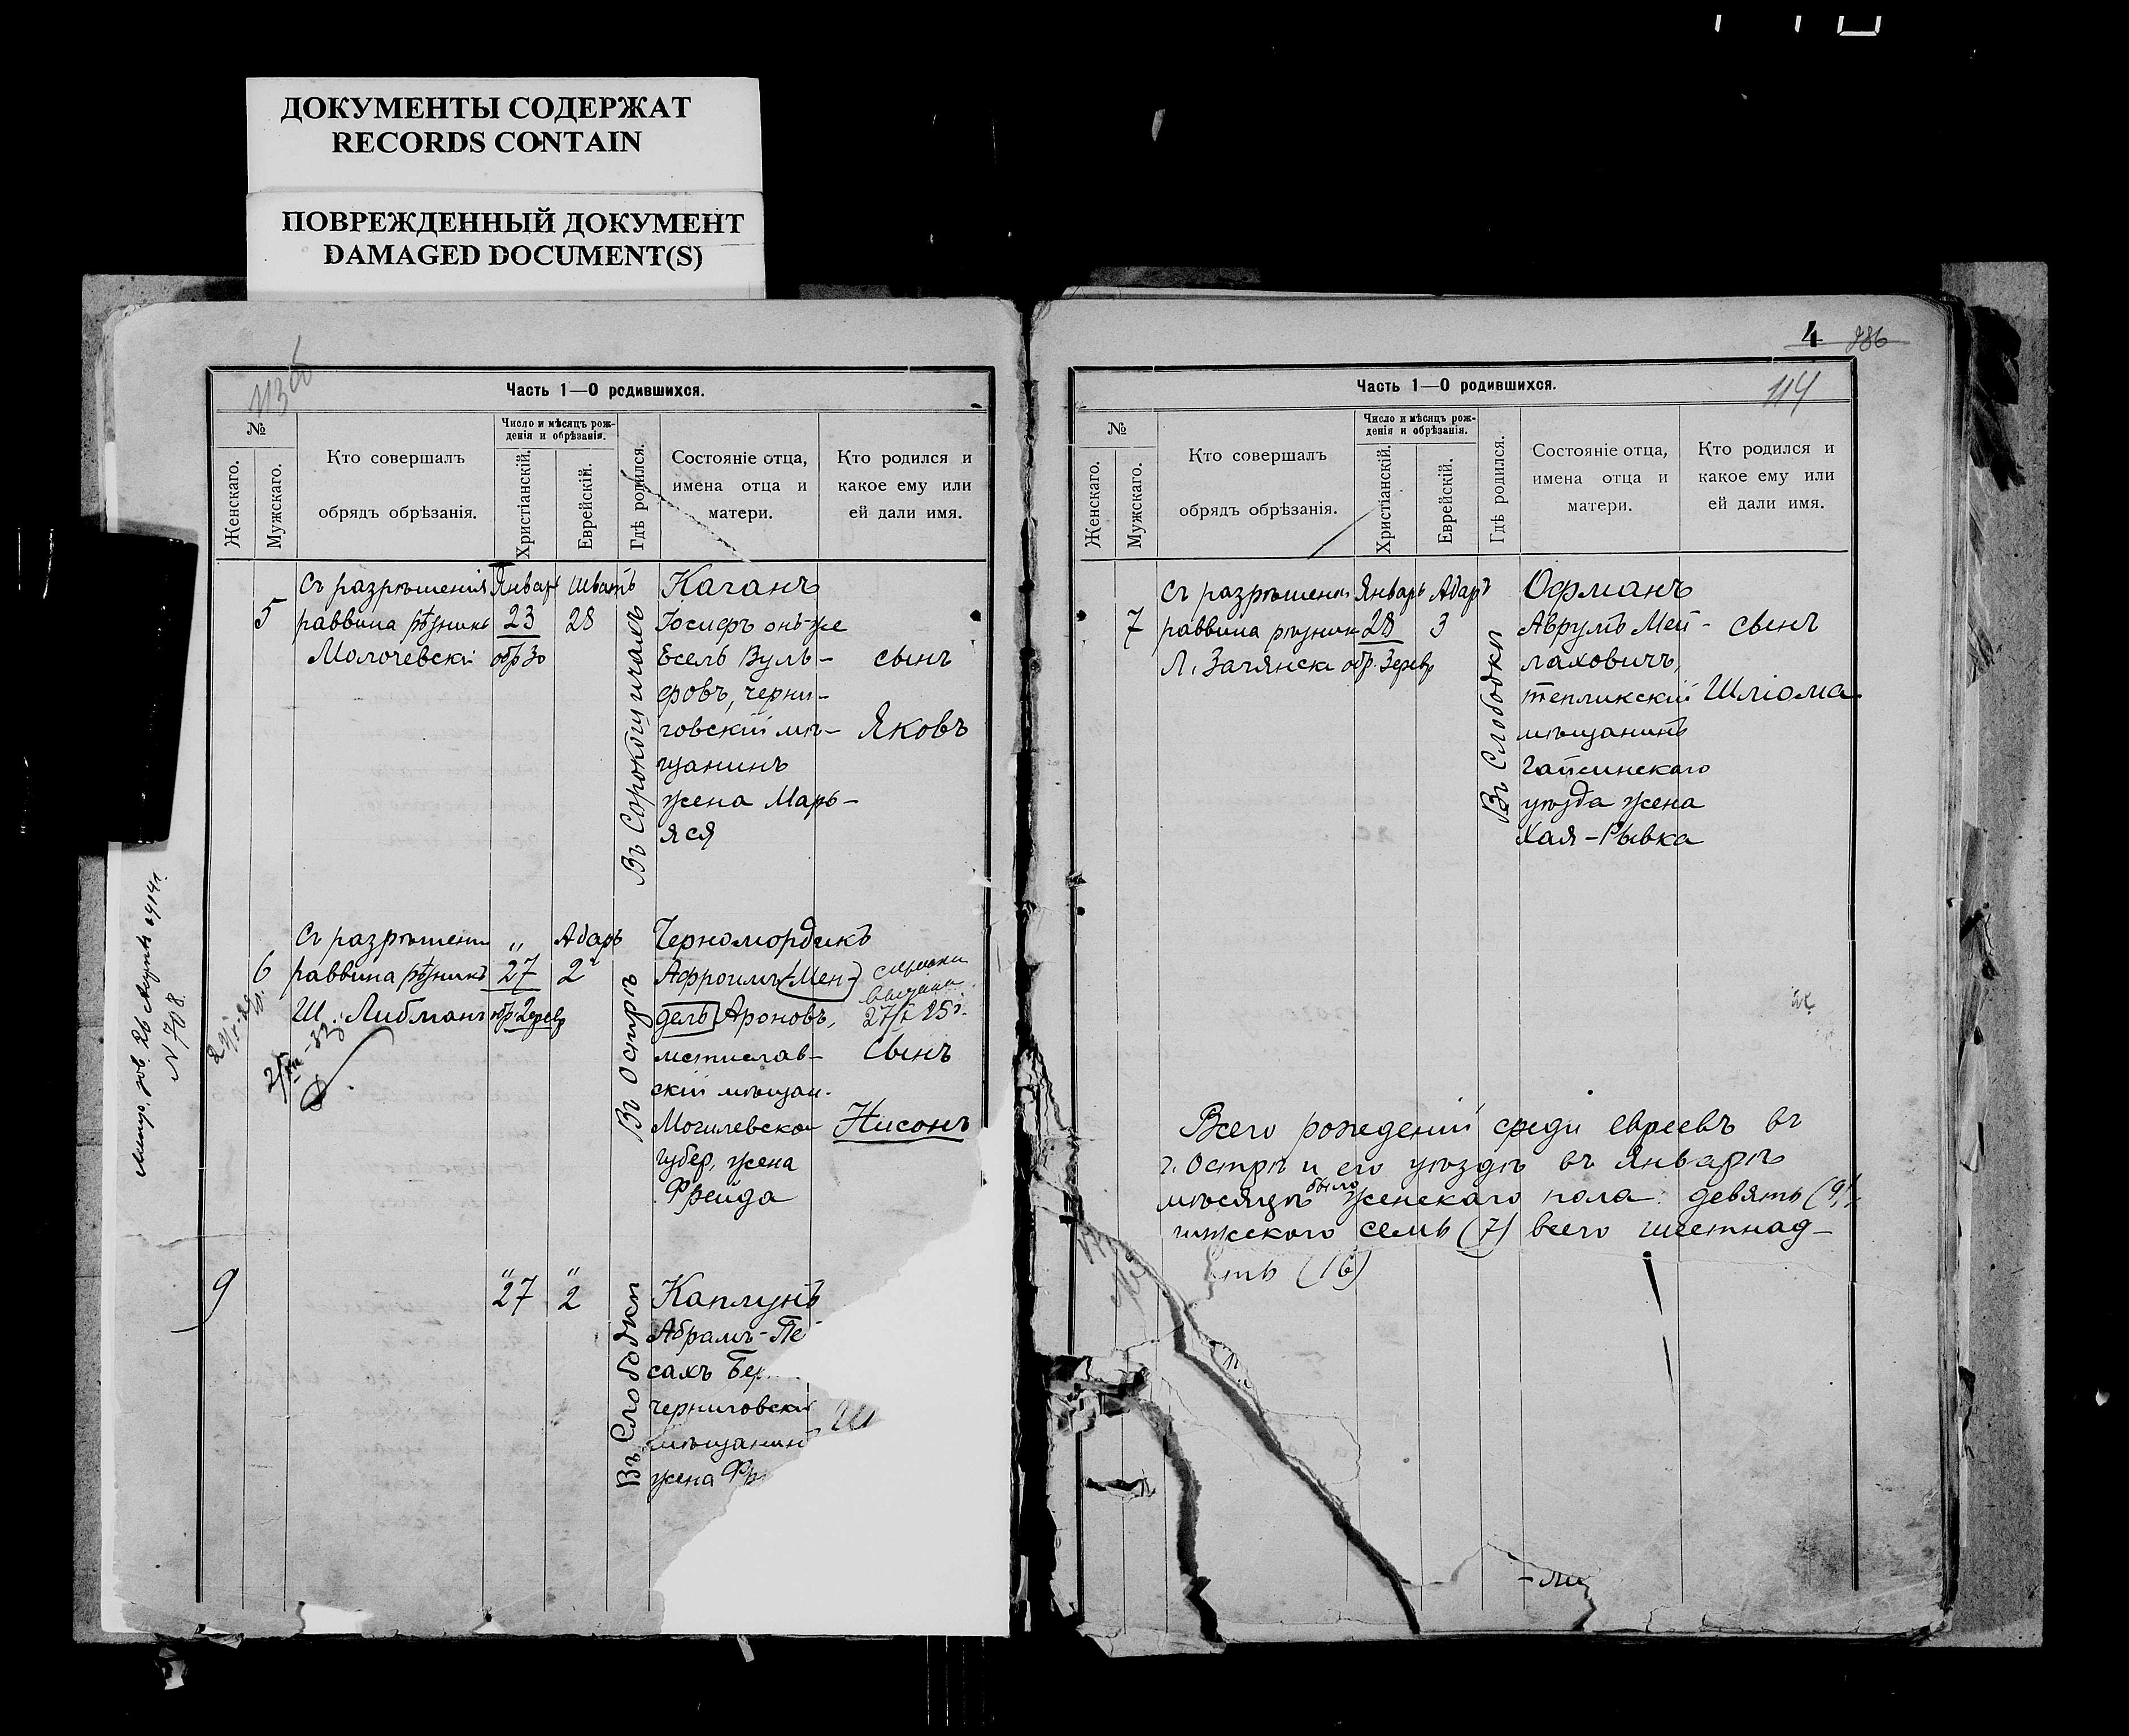 ДОКУМЕНТЫ СОДЕРЖАТ
RECORDS CONTAIN
ПОВРЕЖДЕННЫЙ ДОКУМЕНТ
DAMAGED DOCUMENT(S)
Часть 1—О родившихся.
№
Женскаго.
Мужскаго.
Кто совершалъ
обрядъ обрѣзанія.
Число и мѣсяцъ рож-
денія и обрѣзанія.
Христіанскій.
Еврейскій.
Гдѣ родился.
Состояніе отца,
имена отца и
матери.
Кто родился и
какое ему или
ей дали имя.
5
Съ разрѣшенія
раввина рѣзникъ
Молочевскі
Январь
23
обр 30
Шватъ
28
Каганъ
Іосифъ онъ-же
Есель Вуль-
фовъ, черни-
говскій мѣ-
щанинъ
жена Марь-
яся
сынъ
Яковъ
6
Съ разрѣшени
раввина рѣзникъ
Ш. Либманъ
„
27
Адаръ
2
Въ Острѣ
Черномордикъ
Афроимъ (Мен-
дель) Ароновъ,
мстислав-
скій мѣщан.
Могилевско
губер, жена
Фрейда
27/I 25 г.
Сынъ
Нисонъ
N 708
9
"
27
"
2
Въ Слободкѣ
Каплунъ
Абрамъ-Пе
сахъ Бер
черниговски
мѣщанинъ
жена Фр
4
886
114
Часть 1—О родившихся.
№
Женскаго.
Мужскаго.
Кто совершалъ
обрядъ обрѣзанія.
Число и мѣсяцъ рож-
денія и обрѣзанія.
Христіанскій.
Еврейскій.
Гдѣ родился.
Состояніе отца,
имена отца и
матери.
Кто родился и
какое ему или
ей дали имя.
7
Съ разрѣшени
раввина рѣзник
Л. Зачянски
Январь
28
Адаръ
3
Въ Слободкѣ
Офманъ
Аврумъ Мей-
лаховичъ,
тепликскій
мѣщанинъ
Гайсинскаго
уѣзда жена
Хая-Рывка
сынъ
Шліома
Всего рожденій среди евреевъ въ
г. Острѣ и его уѣздѣ въ Январѣ
мѣсяцѣ было женскаго пола девять (9),
мужского семь (7) всего шестнад-
ть (16)